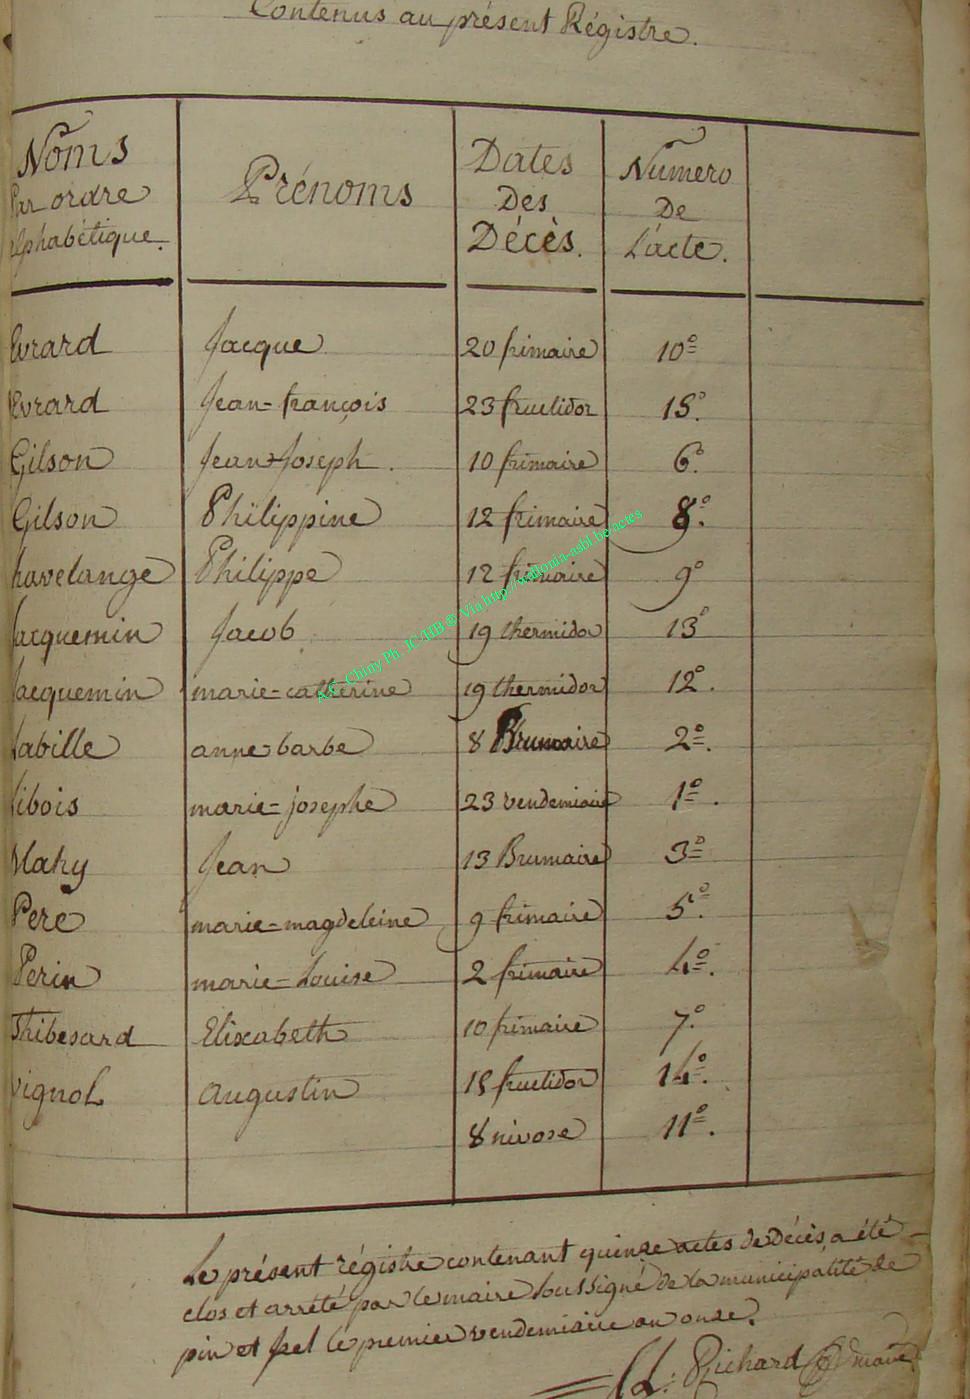 Contenus au présent Régistre.
Noms Par ordre alphabétique. Prénoms Dates Des Décès. Numero De L'acte.
Evrard Jacque 20 frimaire 10º
Evrard Jean-françois 23 fructidor 15º
Gilson Jean-Joseph. 10 frimaire 6º
Gilson Philippine 12 frimaire 8º.
havelange Philippe 12 frimaire 9º
Jacquemin Jacob 19 thermidor 13º
Jacquemin marie-catherine 19 thermidor 12º.
Labille anne barbe 8 Brumaire 2º.
Libois marie-josephe 23 vendemiaire 1º.
Mahy Jean 13 Brumaire 3º
Pere marie-magdeleine 9 frimaire 5º.
Perin marie-Louise 2 frimaire 4º.
Thibesard Elixabeth 10 frimaire 7º
vignol augustin 15 fructidor 14º.
8 nivose 11º.
Le présent régistre contenant quinze actes de Décès a été
clos et arrêté par le maire soussigné de la municipalité de
pin et Izel le premier vendemiaire an onze.
Richard maire
A.E. Chiny Ph. JC-HB © Via http://wallonia-asbl.be/actes